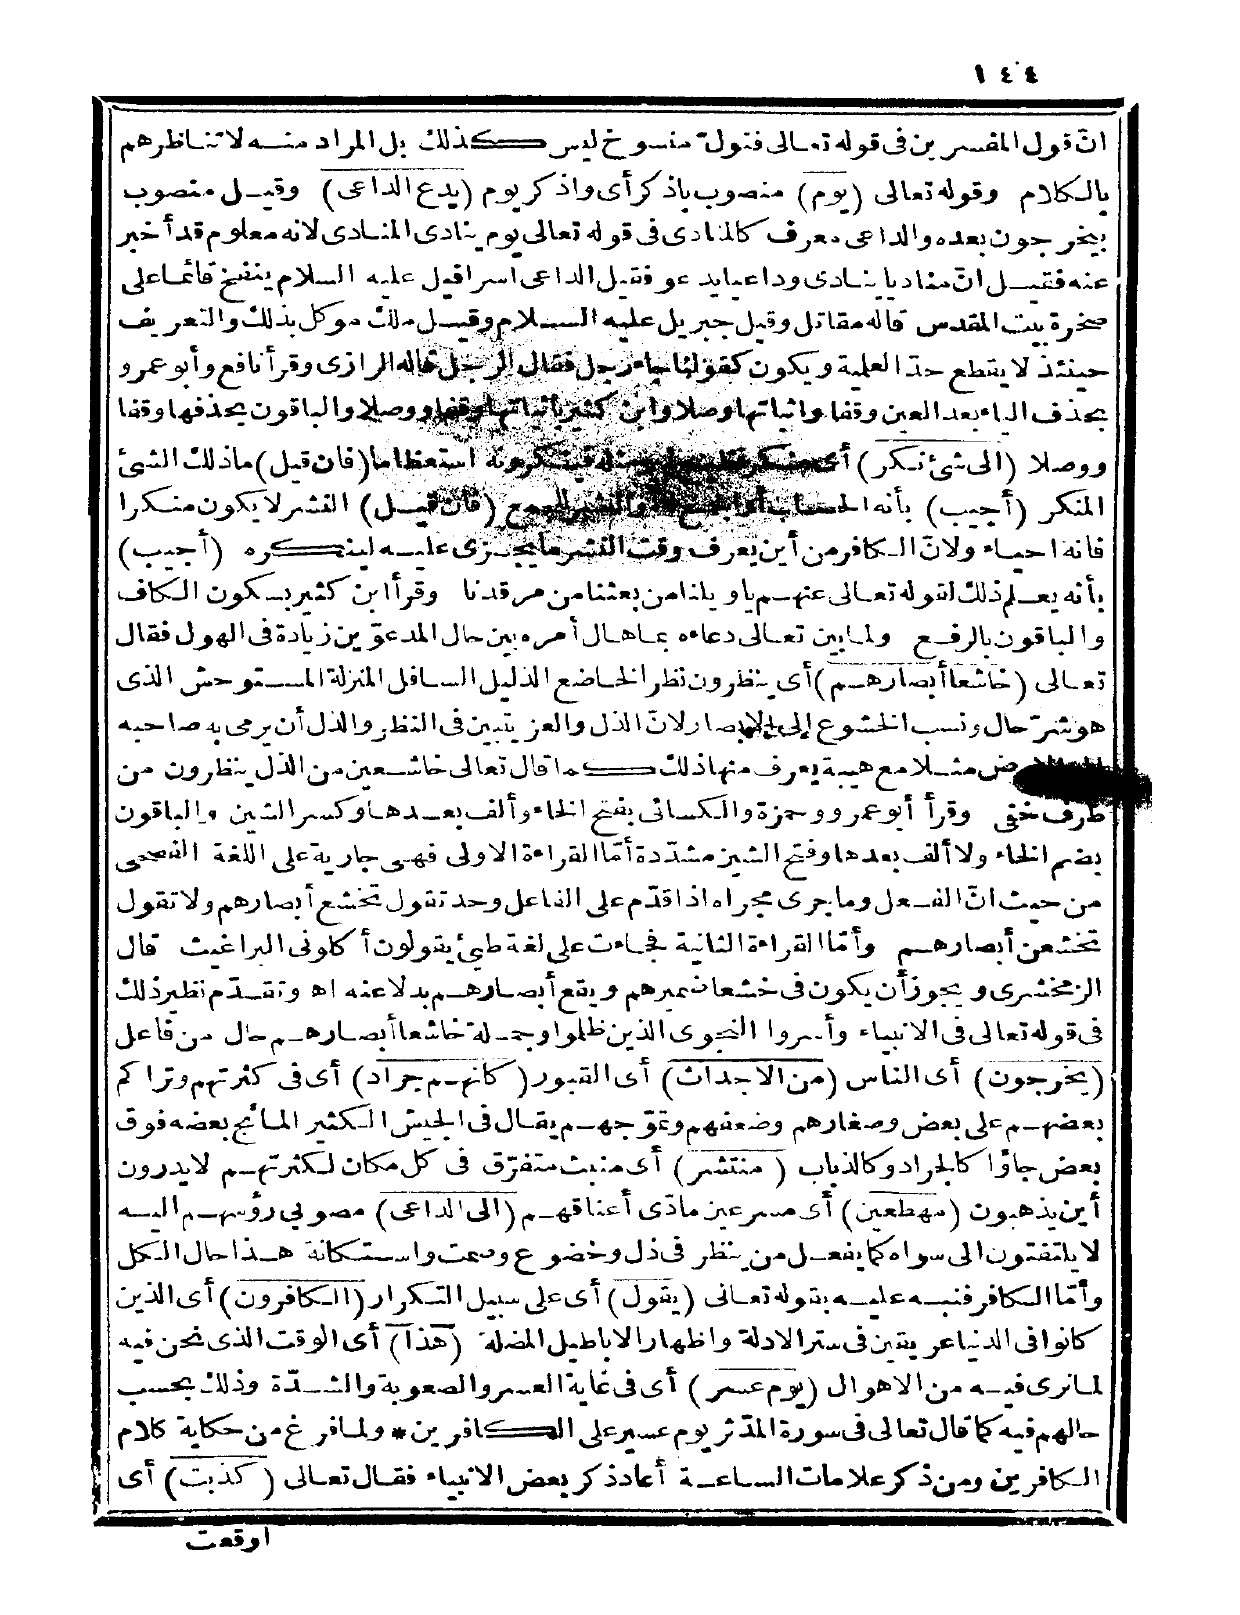 ١٤٤
انّ قول المفسرين فى قوله تعالى فتول منسوخ ليس كذلك بل المراد منه لا تناظرهم
بالكلام وقوله تعالى (يوم) منصوب باذكر أى واذكر يوم (يدع الداعى) وقيل منصوب
بيخرجون بعده والداعى معرف كالمنادى فى قوله تعالى يوم ينادى المنادى لانه معلوم قد أخبر
عنه فقيل انّ مناديا ينادى وداعيا يدعو فقيل الداعى اسرافيل عليه السلام ينفخ قائما على
صخرة بيت المقدس قاله مقاتل وقيل جبريل عليه السلام وقيل ملك موكل بذلك والتعريف
حينئذ لا يقطع حدّ العلمية ويكون كقولنا جاء رجل فقال الرجل قاله الرازى وقرأ نافع وأبو عمرو
بحذف الياء بعد العين وقفا واثباتها وصلا وابن كثير باثباتها وقفا ووصلا والباقون بحذفها وقفا
ووصلا (الى شئ نكر) أى منكر فينكرونه استعظاما (فان قيل) ما ذلك الشئ
المنكر (أجيب) بأنه الحساب أو الجمع له والنشر للجمع (فان قيل) النشر لا يكون منكرا
فانه احياء ولانّ الكافر من أين يعرف وقت النشر ما يجزى عليه لينكره (أجيب)
بأنه يعلم ذلك لقوله تعالى عنهم يا ويلنا من بعثنا من مرقدنا وقرأ ابن كثير بسكون الكاف
والباقون بالرفع ولما بين تعالى دعاءه بما هال أمره بين حال المدعوّين زيادة فى الهول فقال
تعالى (خاشعا أبصارهم) أى ينظرون نظر الخاضع الذليل السافل المنزلة المستوحش الذى
هو شرّ حال ونسب الخشوع إلى الابصار لانّ الذل والعز يتبين فى النظر والذل أن يرمى به صاحبه
الى الارض مثلا مع هيبة يعرف منها ذلك كما قال تعالى خاشعين من الذل ينظرون من
طرف خفى وقرأ أبو عمرو وحمزة والكسائى بفتح الخاء وألف بعدها وكسر الشين والباقون
بضم الخاء ولا ألف بعدها وفتح الشين مشدّدة أمّا القراءة الاولى فهى جارية على اللغة الفصحى
من حيث انّ الفعل وما جرى مجراه اذا قدّم على الفاعل وحد تقول تخشع أبصارهم ولا تقول
تخشعن أبصارهم وأمّا القراءة الثانية فجاءت على لغة طيئ يقولون أكلونى البراغيث قال
الزمخشرى ويجوز أن يكون فى خشعا ضميرهم ويقع أبصارهم بدلا عنه اه وتقدّم نظير ذلك
فى قوله تعالى فى الانبياء وأسروا النجوى الذين ظلموا وجملة خاشعا أبصارهم حال من فاعل
(يخرجون) أى الناس (من الاجداث) أى القبور (كانهم جراد) أى فى كثرتهم وتراكم
بعضهم على بعض وصغارهم وضعفهم وتموّجهم يقال فى الجيش الكثير المائج بعضه فوق
بعض جاؤا كالجراد وكالذباب (منتشر) أى منبث متفرّق فى كل مكان لكثرتهم لا يدرون
أين يذهبون (مهطعين) أى مسرعين مادّى أعناقهم (الى الداعى) مصوبى رؤسهم اليه
لا يلتفتون الى سواه كما يفعل من ينظر فى ذل وخضوع وصمت واستكانة هذا حال الكل
وأمّا الكافر فنبه عليه بقوله تعالى (يقول) أى على سبيل التكرار (الكافرون) أى الذين
كانوا فى الدنيا عريقين فى ستر الادلة واظهار الاباطيل المضلة (هذا) أى الوقت الذى نحن فيه
لما نرى فيه من الاهوال (يوم عسر) أى فى غاية العسر والصعوبة والشدّة وذلك بحسب
حالهم فيه كما قال تعالى فى سورة المدّثر يوم عسير على الكافرين * ولما فرغ من حكاية كلام
الكافرين ومن ذكر علامات الساعة أعاد ذكر بعض الانبياء فقال تعالى (كذبت) أى
اوقعت